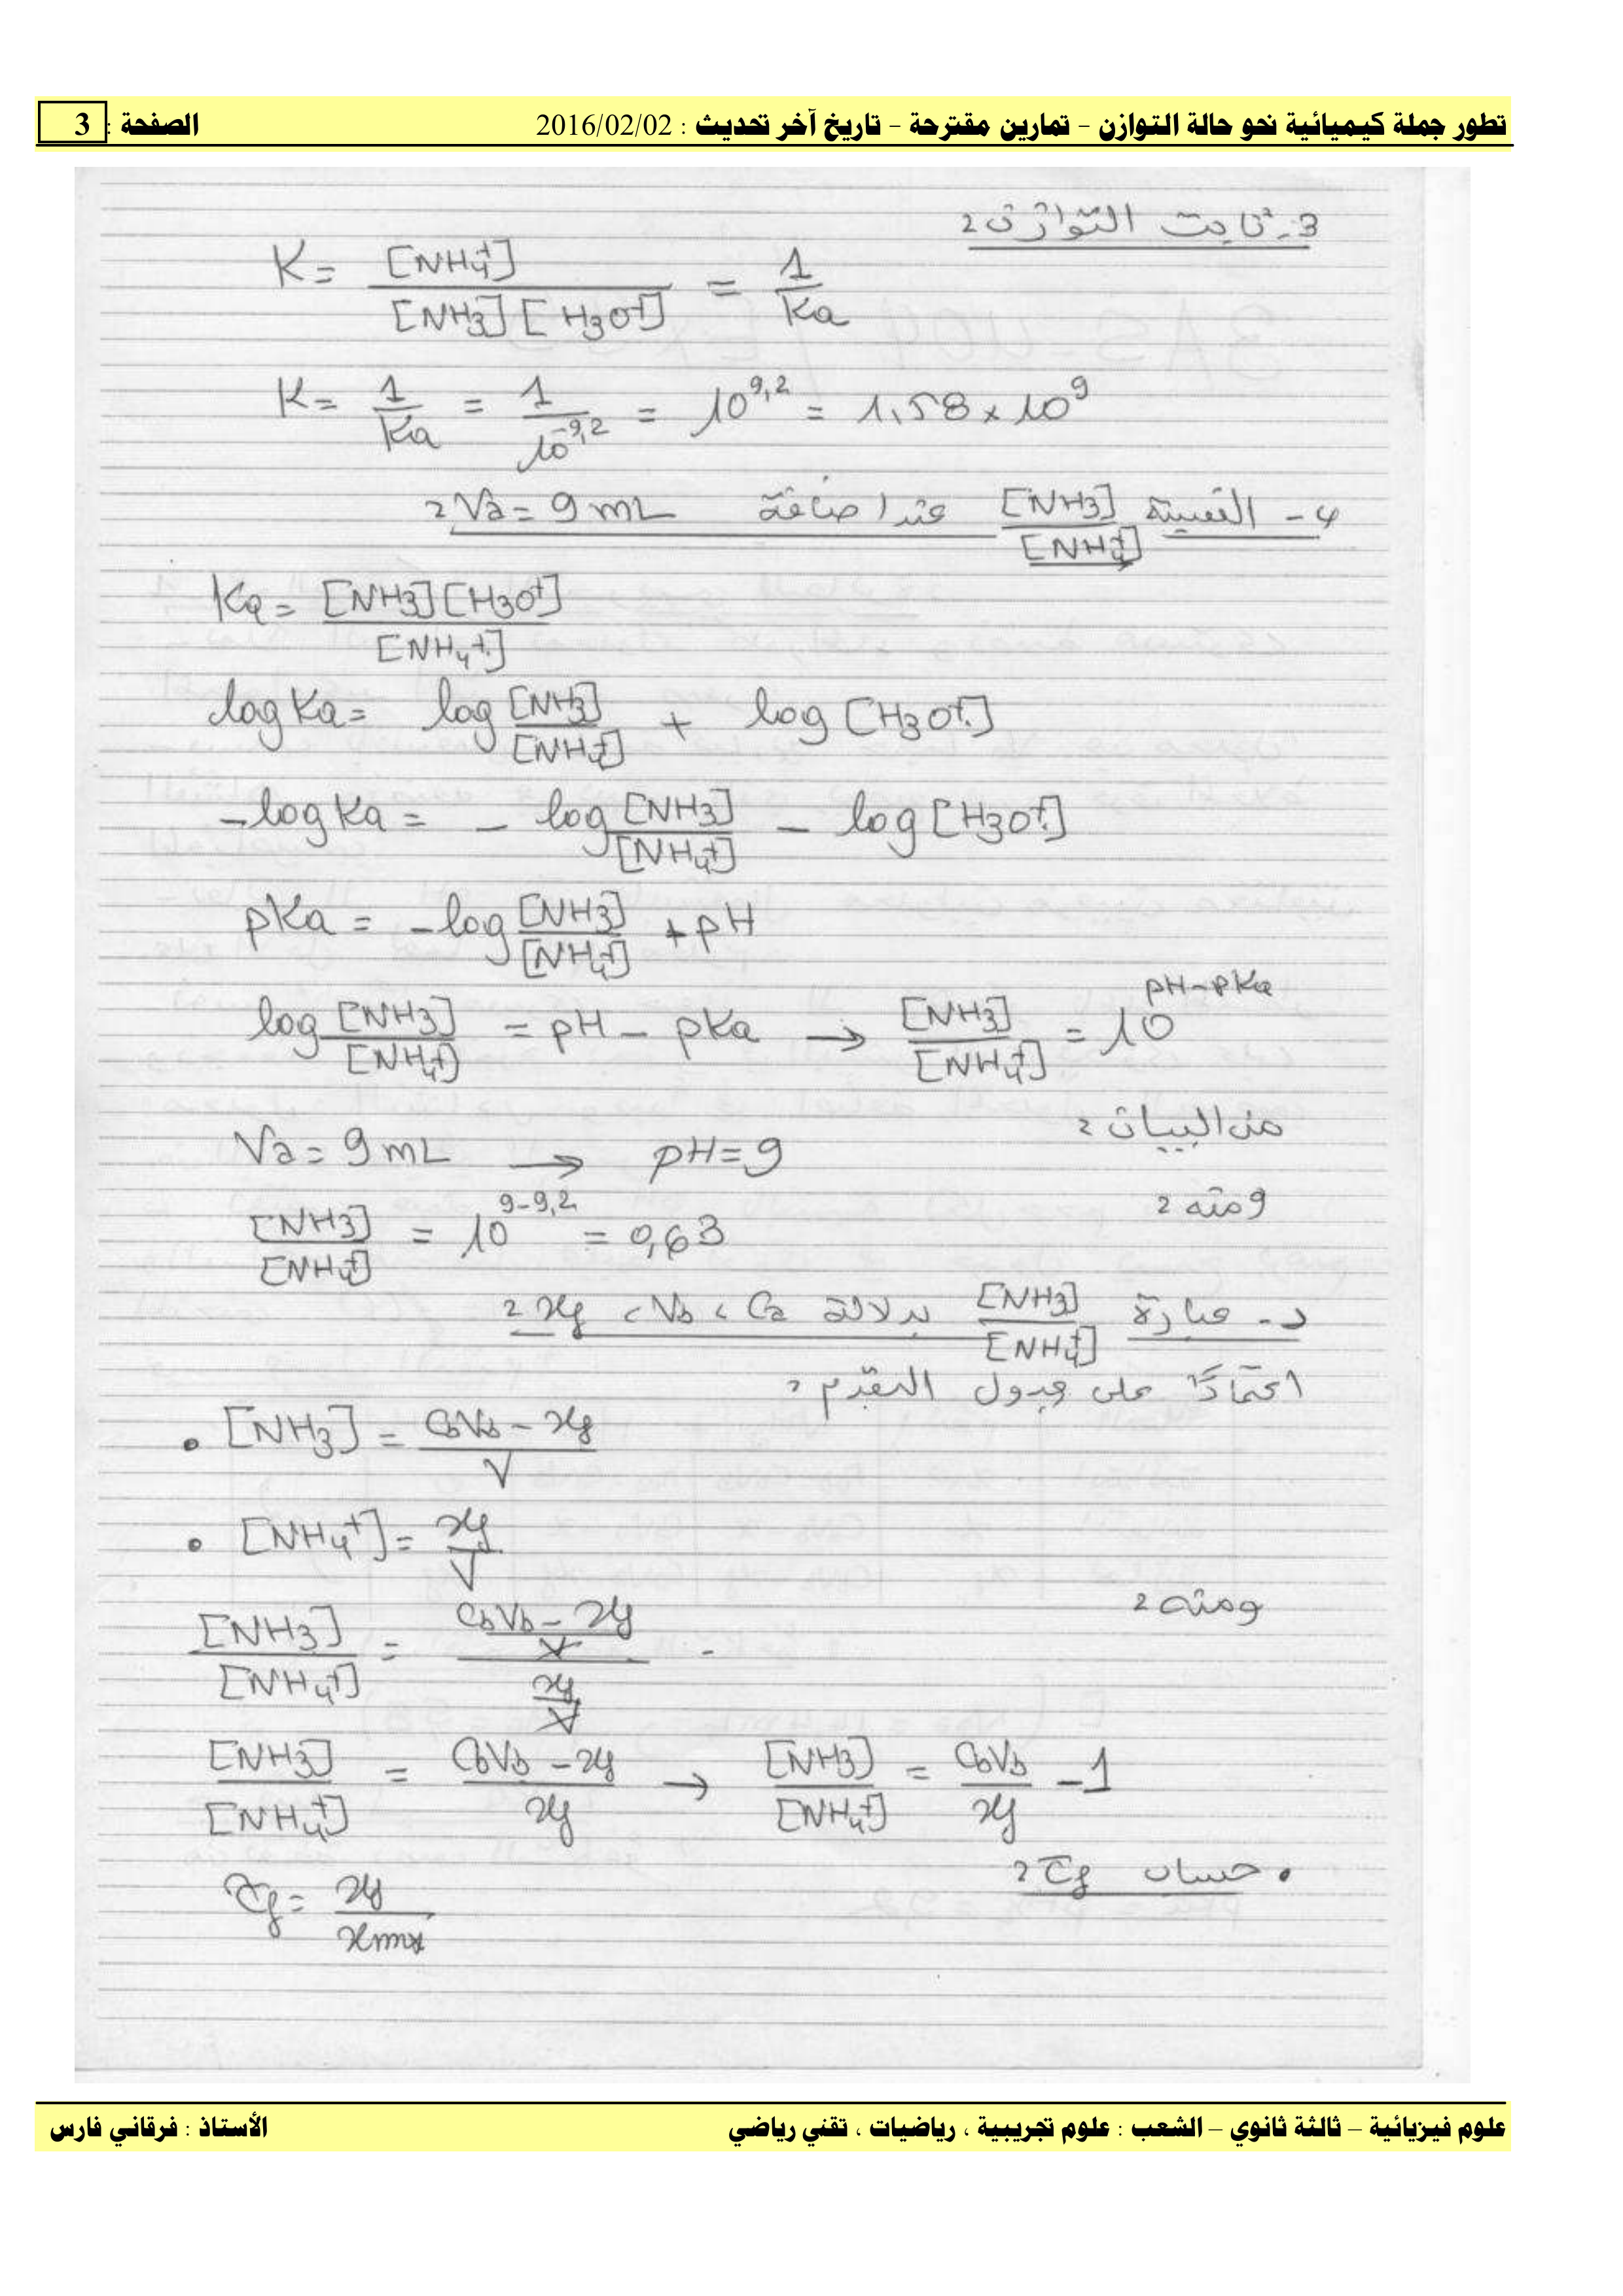 تطور جملة كيميائية نحو حالة التوازن – تمارين مقترحة – تاريخ آخر تحديث : 2016/02/02 الصفحة : 3
3- ثابت التوازن :
K = [NH4+] / [NH3][H3O+] = 1 / Ka
K = 1 / Ka = 1 / 10^-9,2 = 10^9,2 = 1,58 × 10^9
4- النسبة [NH3] / [NH4+] عند اضافة Va = 9 mL :
Ka = [NH3][H3O+] / [NH4+]
log Ka = log [NH3] / [NH4+] + log [H3O+]
- log Ka = - log [NH3] / [NH4+] - log [H3O+]
pKa = - log [NH3] / [NH4+] + pH
log [NH3] / [NH4+] = pH - pKa → [NH3] / [NH4+] = 10^pH-pKa
من البيان :
Va = 9 mL → pH = 9
ومنه :
[NH3] / [NH4+] = 10^9-9,2 = 0,63
د- عبارة [NH3] / [NH4+] بدلالة Ca ، Vb ، xf :
اعتمادًا على جدول التقدم :
• [NH3] = CbVb - xf / V
• [NH4+] = xf / V
ومنه :
[NH3] / [NH4+] = (CbVb - xf / V) / (xf / V)
[NH3] / [NH4+] = CbVb - xf / xf → [NH3] / [NH4+] = CbVb / xf - 1
• حساب τf :
τf = xf / xmax
علوم فيزيائية – ثالثة ثانوي – الشعب : علوم تجريبية ، رياضيات ، تقني رياضي الأستاذ : فرقاني فارس